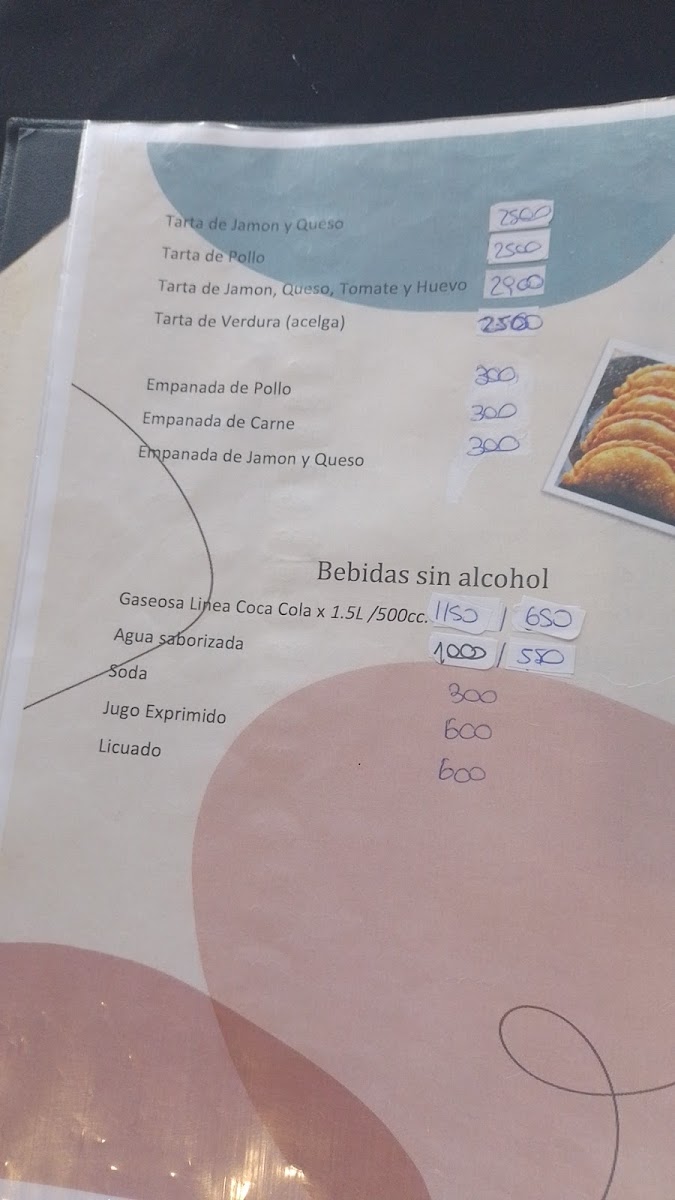 Tarta de Jamon y Queso 2500
Tarta de Pollo 2500
Tarta de Jamon, Queso, Tomate y Huevo 2900
Tarta de Verdura (acelga) 2500
Empanada de Pollo 300
Empanada de Carne 300
Empanada de Jamon y Queso 300
Bebidas sin alcohol
Gaseosa Linea Coca Cola x 1.5L /500cc. 1150 / 650
Agua saborizada 1000 / 550
Soda 300
Jugo Exprimido 600
Licuado 600